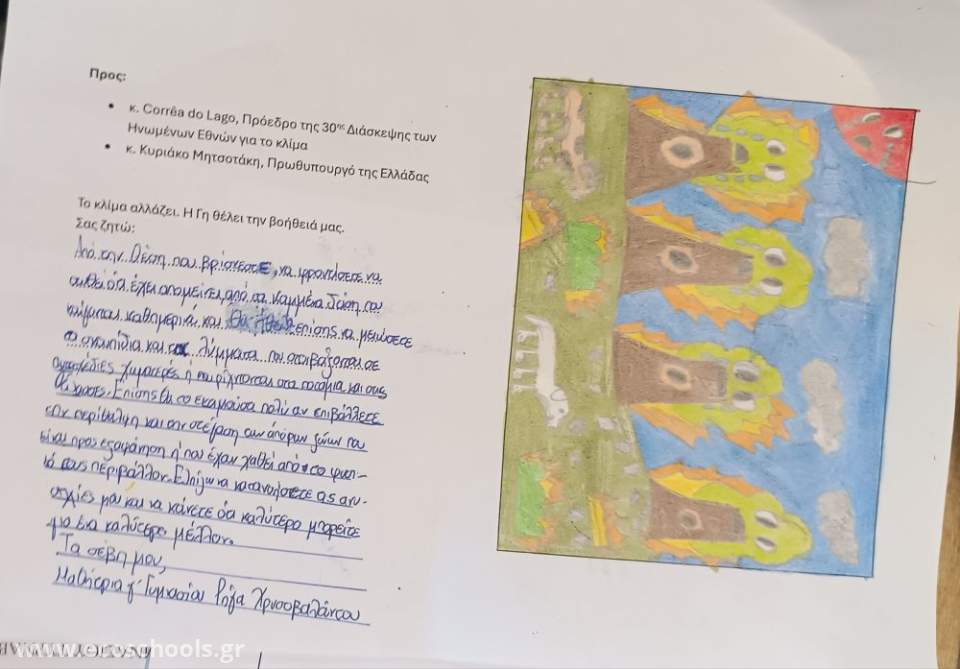 Προς:
• κ. Corrêa do Lago, Πρόεδρο της 30ης Διάσκεψης των
Ηνωμένων Εθνών για το κλίμα
• κ. Κυριάκο Μητσοτάκη, Πρωθυπουργό της Ελλάδας
Το κλίμα αλλάζει. Η Γη θέλει την βοήθειά μας.
Σας ζητώ:
Από την θέση που βρίσκεστε, να φροντίσετε να
ό,τι έχει απομείνει από τα καμμένα δάση που
καθημερινά και θα ήθελα επίσης να μειώσετε
τα σκουπίδια και τα λύμματα που αποβάλλονται σε
χωματερές ή που ρίχνονται στα ποτάμια και τους
θάλασσες. Επίσης θα το εκτιμούσα πολύ αν επιβάλλετε
την περίθαλψη και την στέγαση των άπορων ζώων που
είναι προς εξαφάνιση ή που έχουν χαθεί από το φυσι-
κό τους περιβάλλον. Ελπίζω να κατανοήσετε τις ανη-
συχίες μου και να κάνετε ότι καλύτερο μπορείτε
για ένα καλύτερο μέλλον.
Τα σέβη μου,
Μαθήτρια γ' Γυμνασίου Ρόζα Χρυσοβαλάντου
www.ecoschools.gr